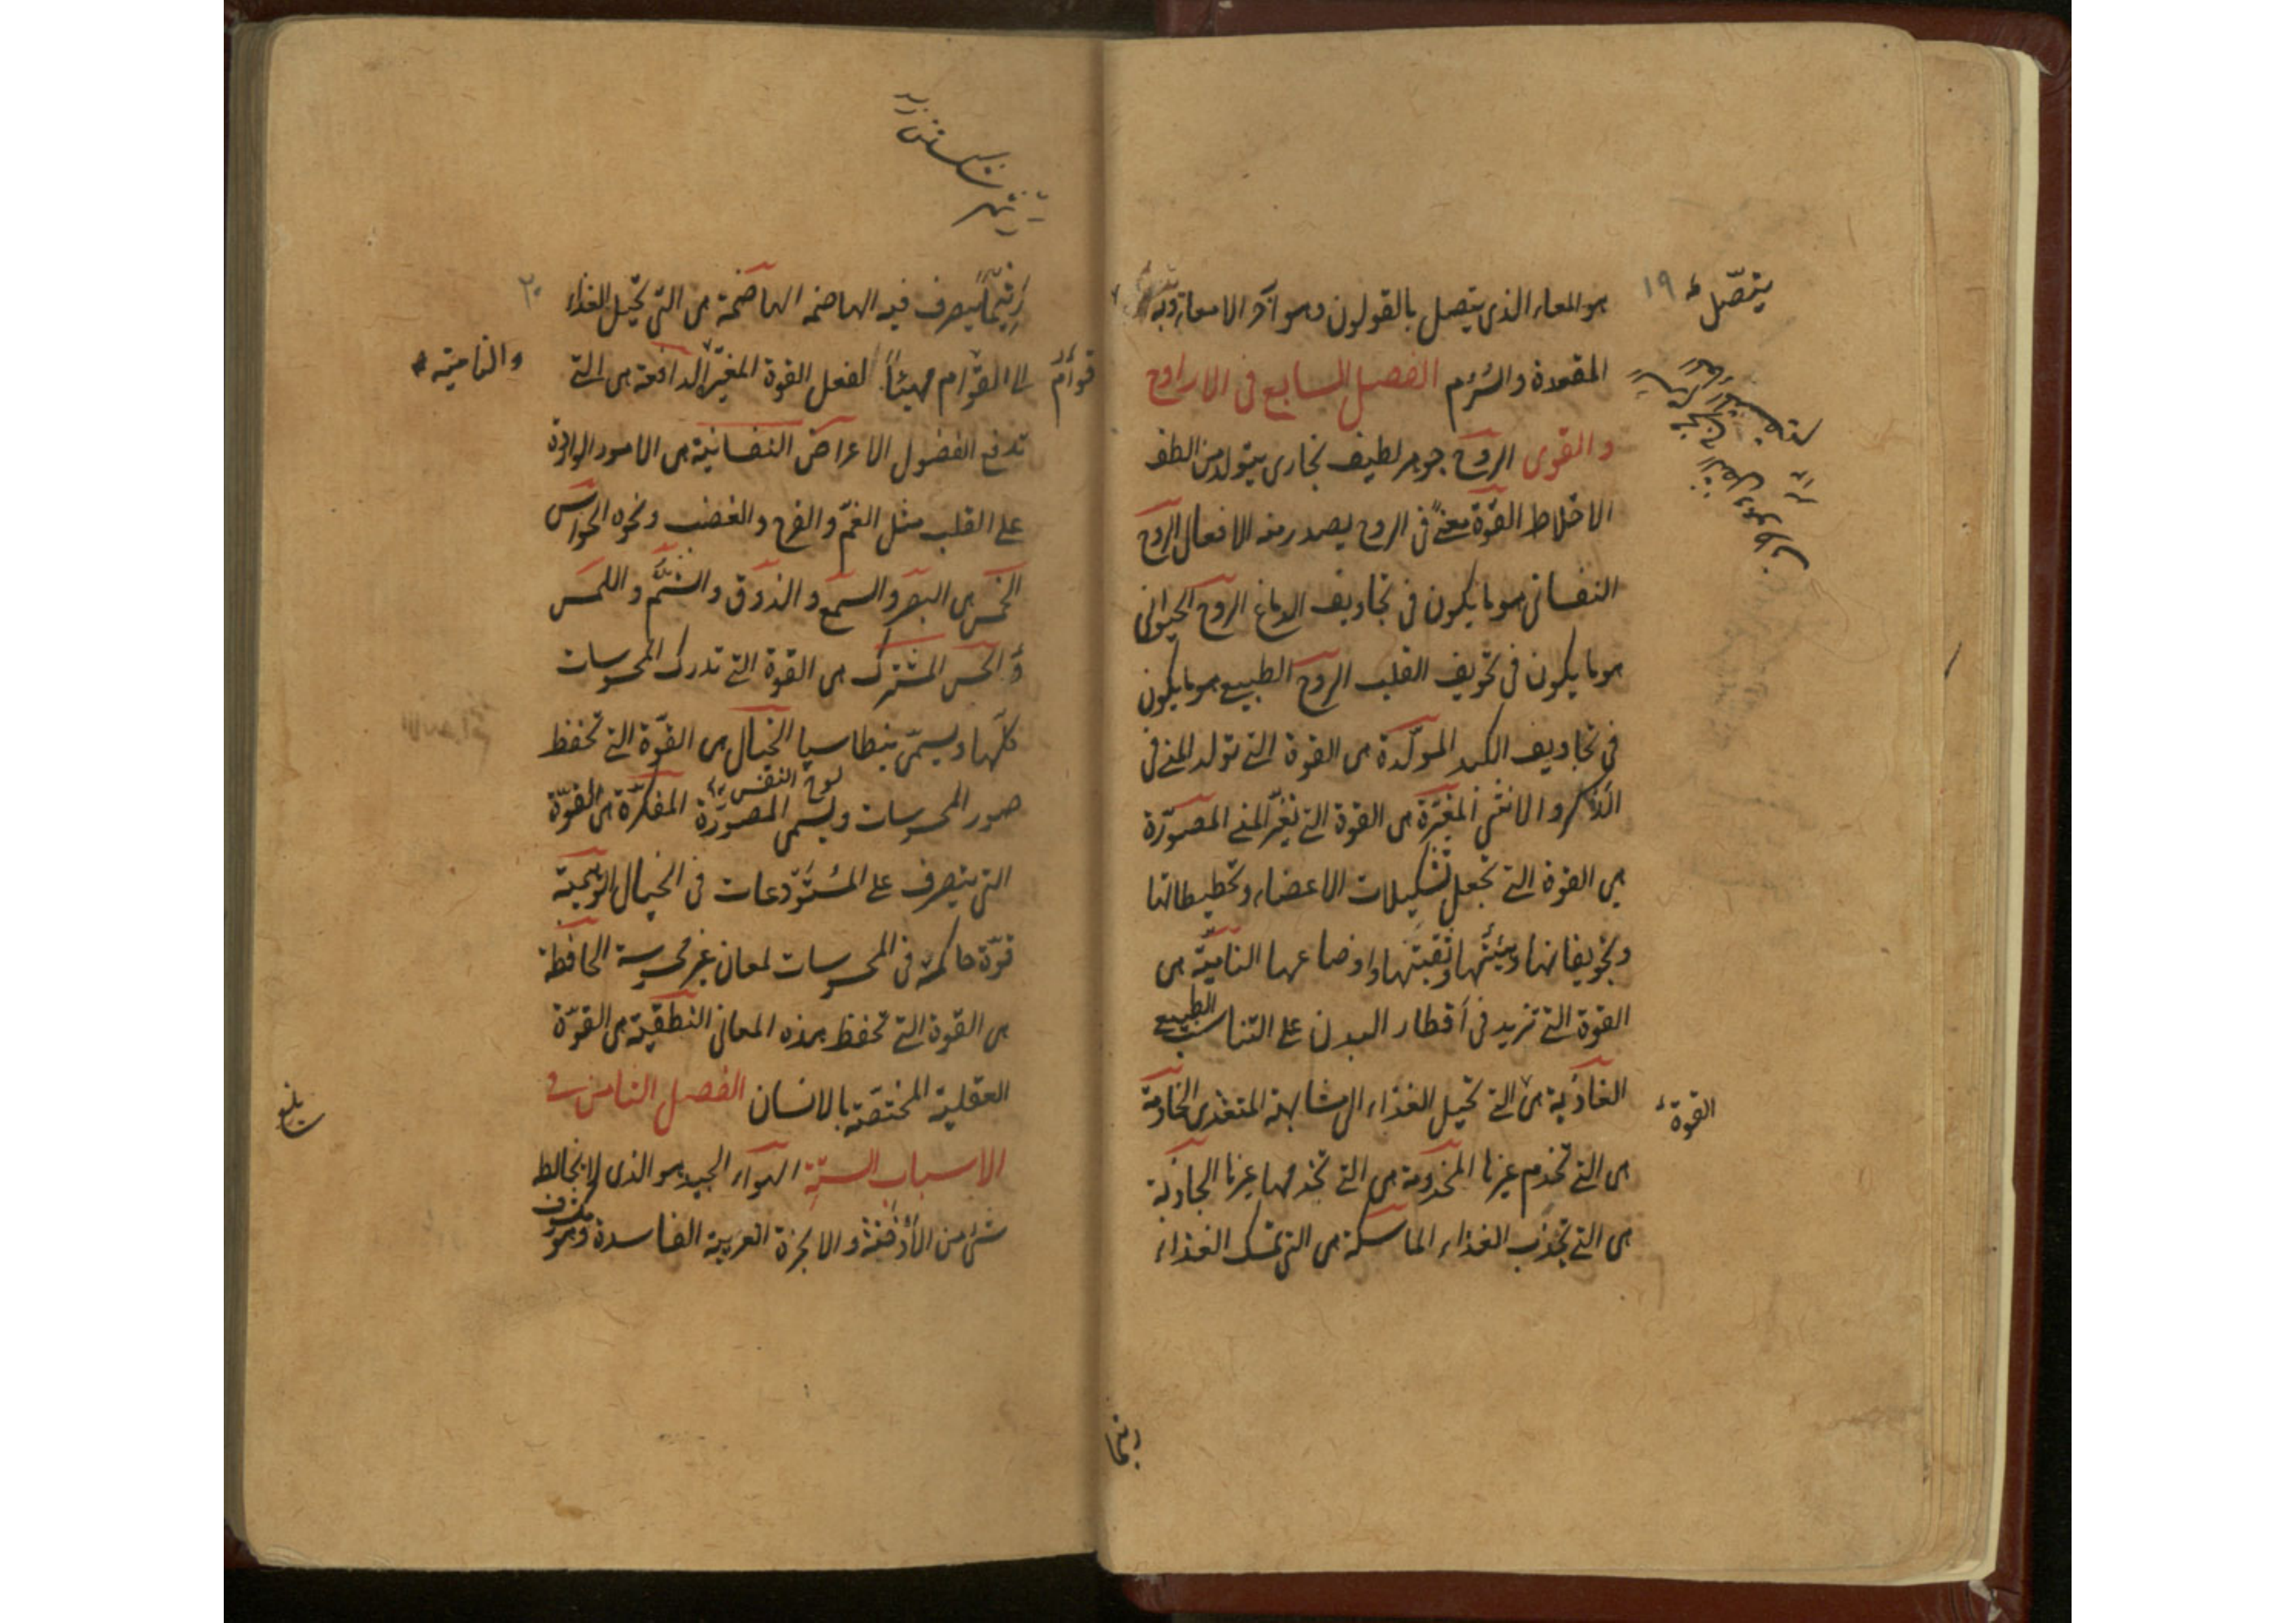 هو المعاء الذي يتصل بالقولون وهو آخر الامعاء وبه
المقعدة والسُرْم الفصل السابع في الارواح
والقوى الروح جوهر لطيف بخاري يتولد من الطف
الاخلاط القوّة معنىً في الروح يصدر منه الافعال الروح
النفساني هو ما يكون في تجاويف الدماغ الروح الحيواني
هو ما يكون في تجويف القلب الروح الطبيعي هو ما يكون
في تجاويف الكبد المولّدة هي القوة التي تولد المني في
الذكر والانثى المغيّرة هي القوة التي تغيّر المني المصوّرة
هي القوة التي تجعل تشكيلات الاعضاء وتخطيطاتها
وتجويفاتها وهيئتها وثقبتها واوضاعها الناميّة هي
القوة التي تزيد في أقطار البدن على التناسب الطبيعي
الغاذية هي التي تحيل الغذاء الى مشابهة المتغذي الخادمة
هي التي تخدم غيرها المخدومة هي التي تخدمها غيرها الجاذبة
هي التي تجذب الغذاء الماسكة هي التي تمسك الغذاء
يتصّل
١٩
القوة
رَيْثَما يتصرف فيه الهاضمه الهاضمة هي التي تحيل الغذاء
الى القوام مهيئاً لفعل القوة المغيّرة الدافعة هي التي
تدفع الفضول الاعراض النفسانية هي الامور الواردة
على القلب مثل الغمّ والفرح والغضب ونحوه الحواس
الخمس هي البصر والسمع والذوق والشَّمّ واللمس
والحسّ المشترك هي القوة التي تدرك المحسوسات
كلّها ويسمّى بنطاسيا الخيال هي القوّة التي تحفظ
صور المحسوسات ويسمى المصوّرة المفكّرة هي القوّة
لوح النفس
التي يتصرف على المُسْتَوْدعات في الخيال الوهمية
قوّة حاكمة في المحسوسات لمعان غير محسوسة الحافظة
هي القوة التي تحفظ هذه المعاني النطقية هي القوّة
العقلية المختصّة بالانسان الفصل الثامن في
الاسباب الستّة الهواء الجيد هو الذي لا يخالط
شئ من الأَدْخِنَة والابخرة الغريبة الفاسدة وهو مكشوف
٢٠
قوامٌ
والناميّة